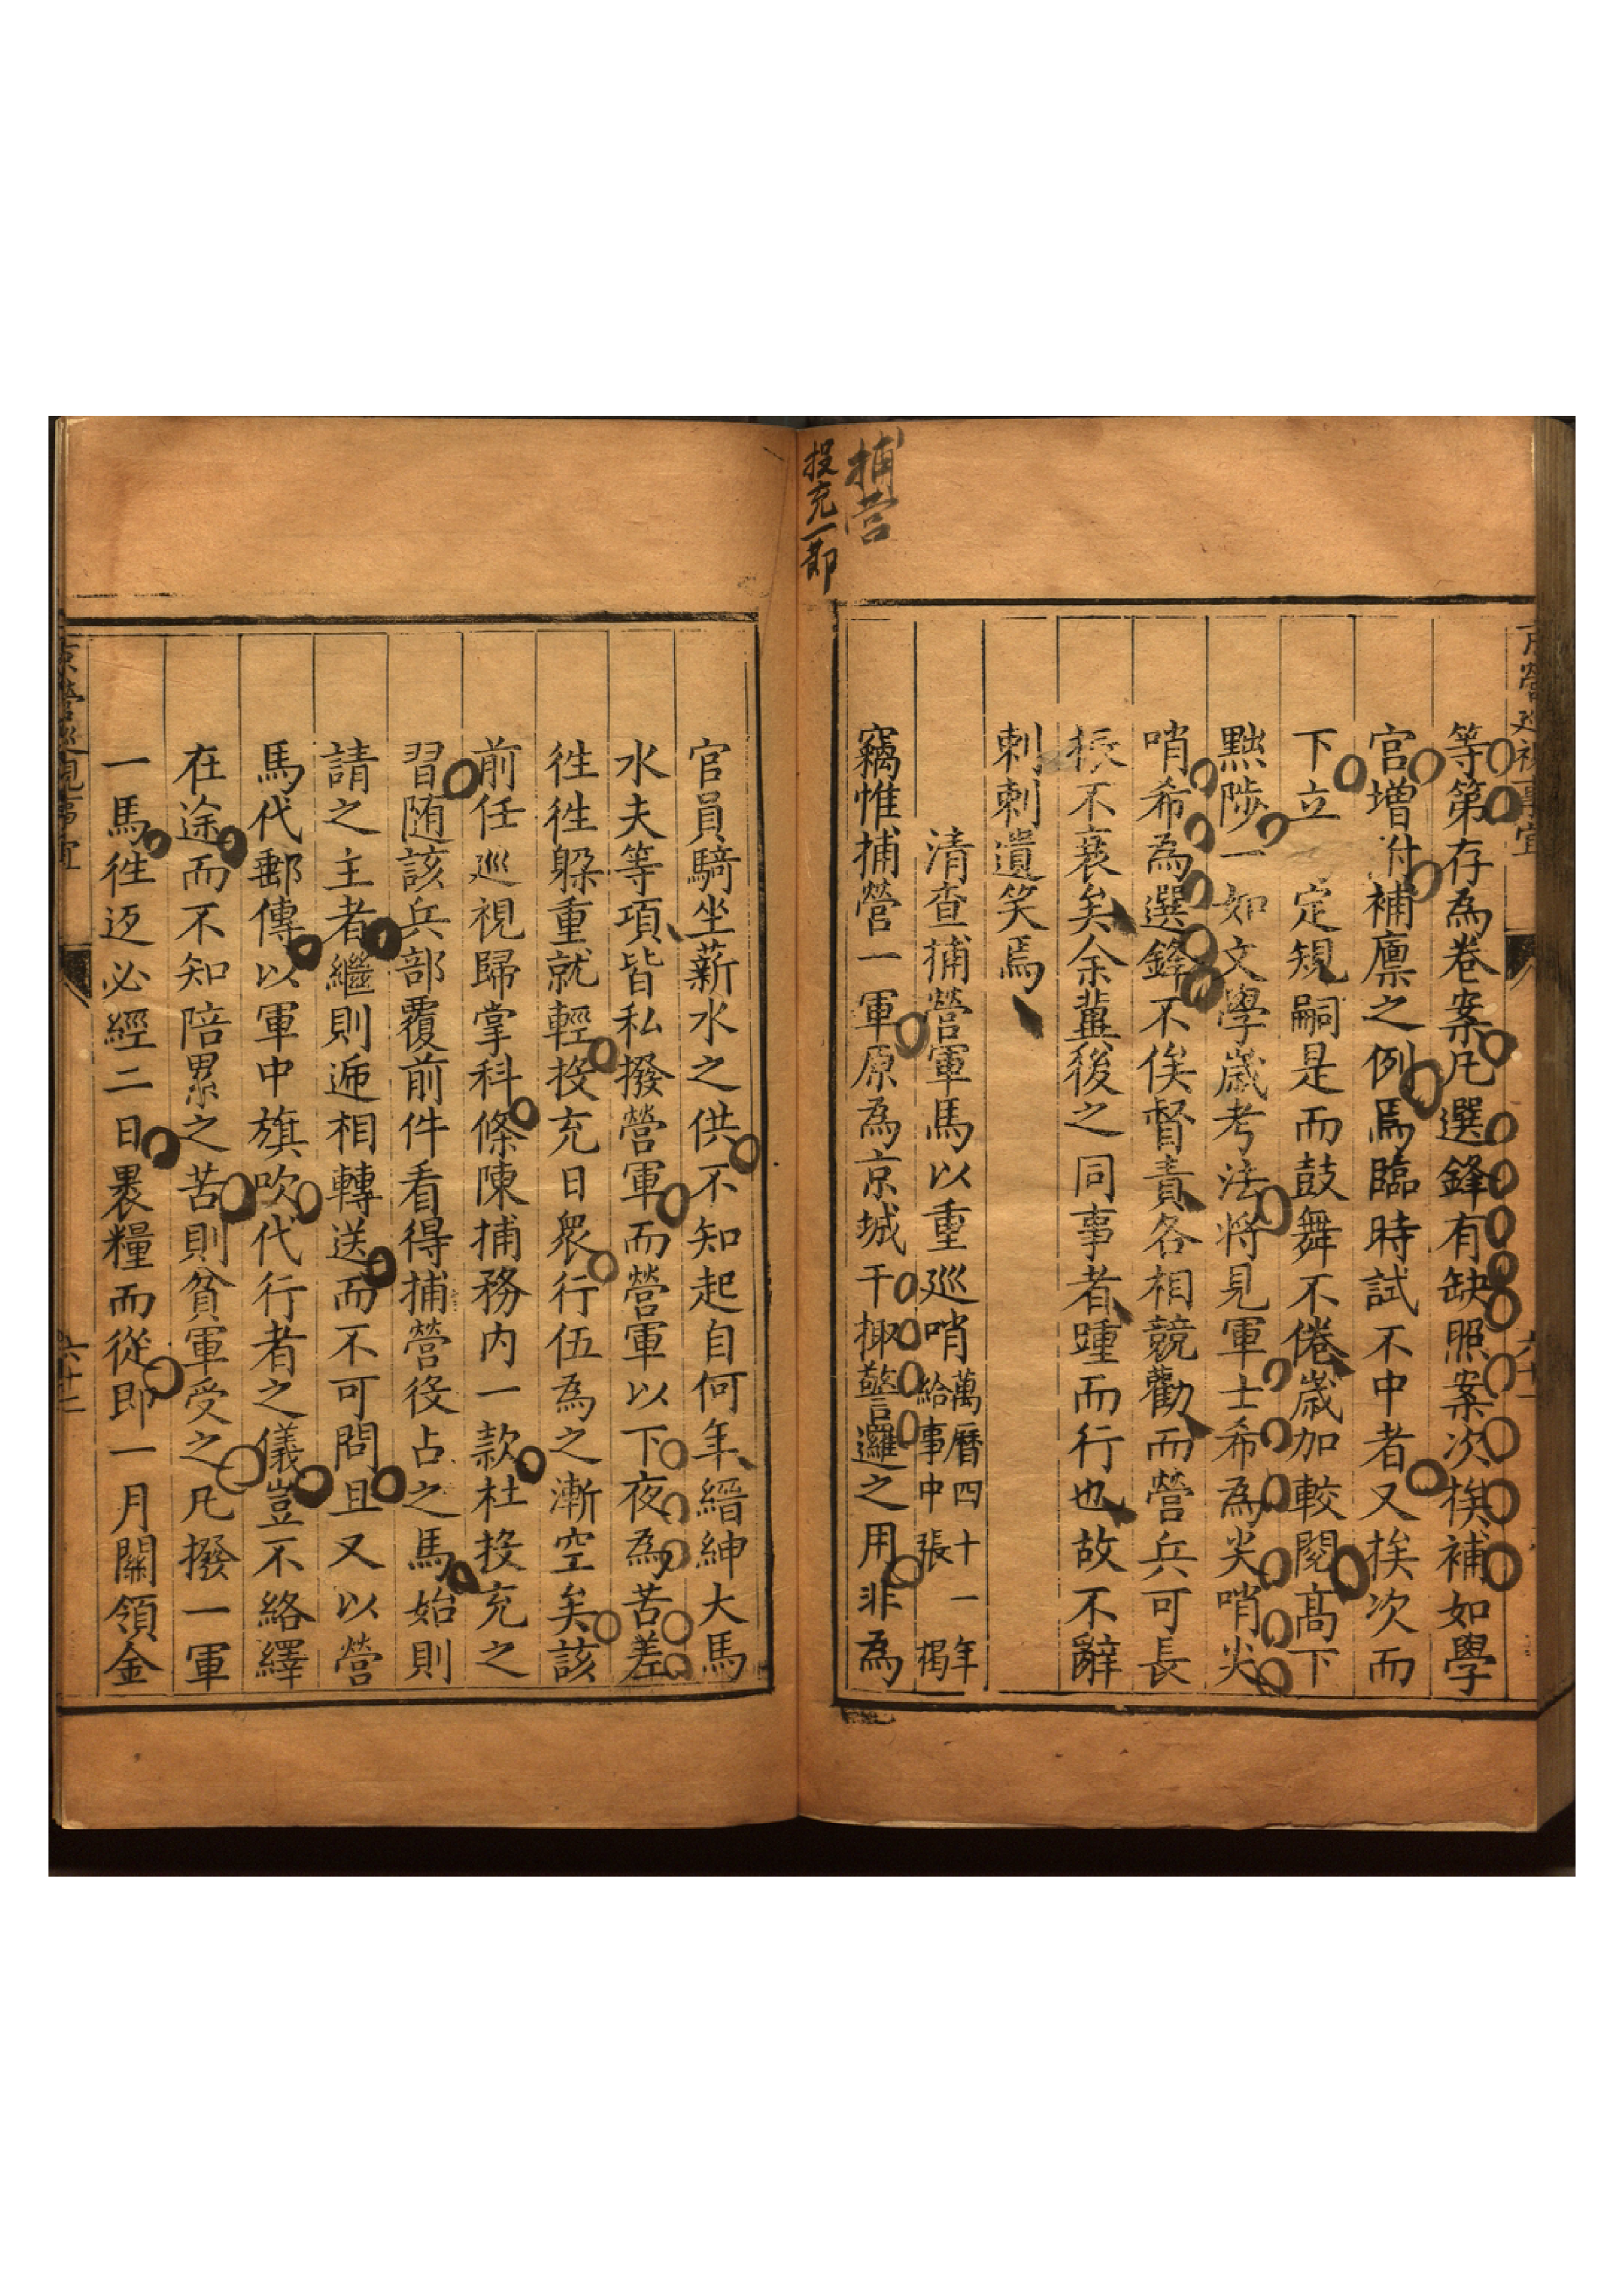 捕營
投充一節
等第存為卷案凡選鋒有缺照案次挨補如學
官增附補廪之例焉臨時試不中者又挨次而
下立定規嗣是而鼓舞不倦歲加較閱高下
黜陟一如文學歲考法將見軍士希為尖哨尖
哨希為選鋒不俟督責各相競勸而營兵可長
振不衰矣余冀後之同事者踵而行也故不辭
剌剌遺笑焉
清查捕營軍馬以重巡哨
萬曆四十一年
給事中張 揭
竊惟捕營一軍原為京城干掫警邏之用非為
官員騎坐薪水之供不知起自何年縉紳大馬
水夫等項皆私撥營軍而營軍以下夜為苦差
徃徃躱重就輕投充日衆行伍為之漸空矣該
前任巡視歸掌科條陳捕務内一款杜投充之
習随該兵部覆前件看得捕營役占之馬始則
請之主者繼則逓相轉送而不可問且又以營
馬代郵傳以軍中旗吹代行者之儀豈不絡繹
在途而不知陪累之苦則貧軍受之凡撥一軍
一馬徃返必經二日褁糧而從即一月關領金
京營巡視事宜
六十二